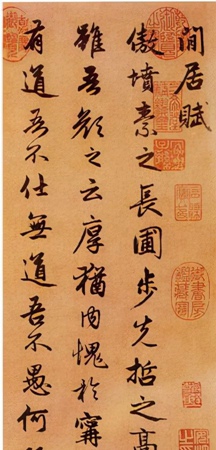 閒居賦
傲墳素之長圃步先哲之高
雖吾顏之云厚猶內愧於寗
有道吾不仕無道吾不愚何